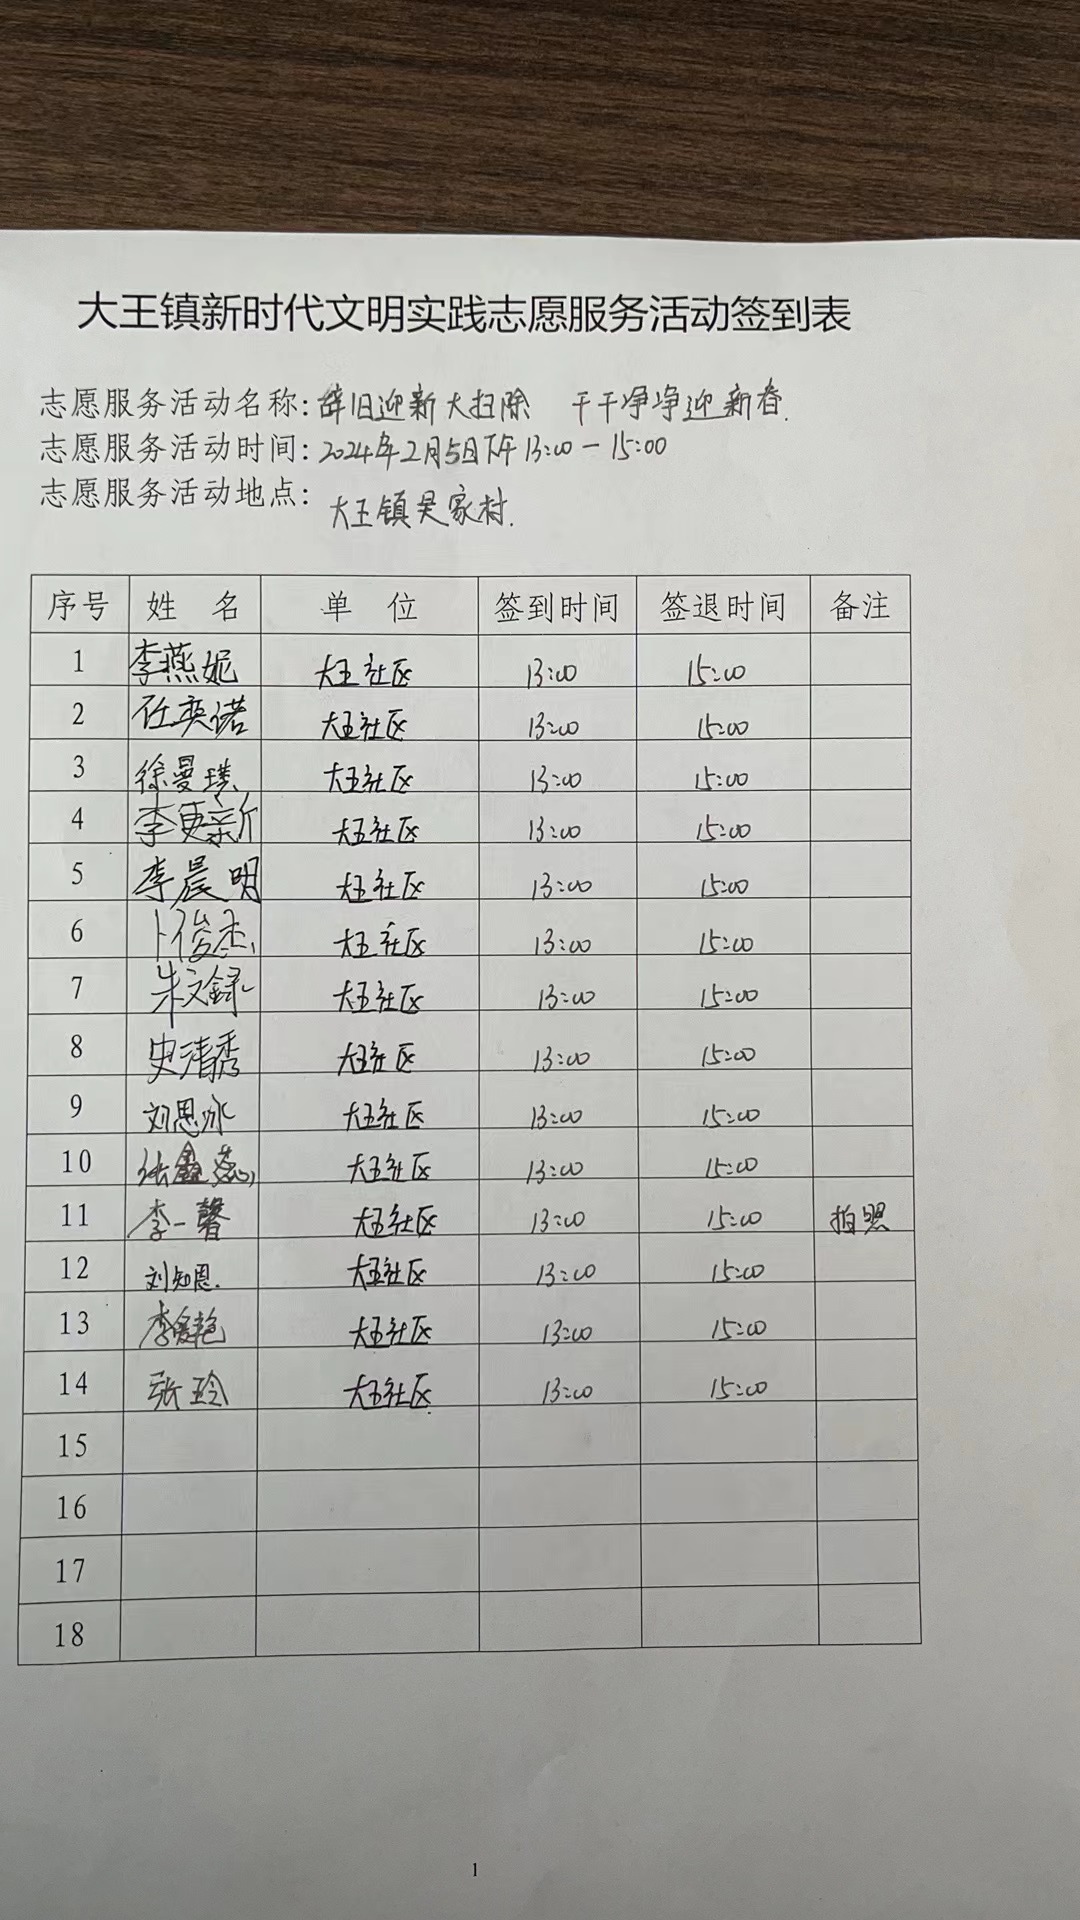 大王镇新时代文明实践志愿服务活动签到表
志愿服务活动名称:辞旧迎新大扫除 干干净净迎新春.
志愿服务活动时间:2024年2月5日下午13:00-15:00
志愿服务活动地点:大王镇吴家村.
序号 姓 名 单 位 签到时间 签退时间 备注
1 李燕妮 大王社区 13:00 15:00
2 任奕诺 大王社区 13:00 15:00
3 徐曼琪 大王社区 13:00 15:00
4 李更新 大王社区 13:00 15:00
5 李晨明 大王社区 13:00 15:00
6 卜俊杰 大王社区 13:00 15:00
7 朱文録 大王社区 13:00 15:00
8 史清秀 大王社区 13:00 15:00
9 刘恩冰 大王社区 13:00 15:00
10 张鑫蕊 大王社区 13:00 15:00
11 李一馨 大王社区 13:00 15:00 拍照
12 刘知恩. 大王社区 13:00 15:00
13 大王社区 13:00 15:00
14 张玲 大王社区 13:00 15:00
15
16
17
18
1